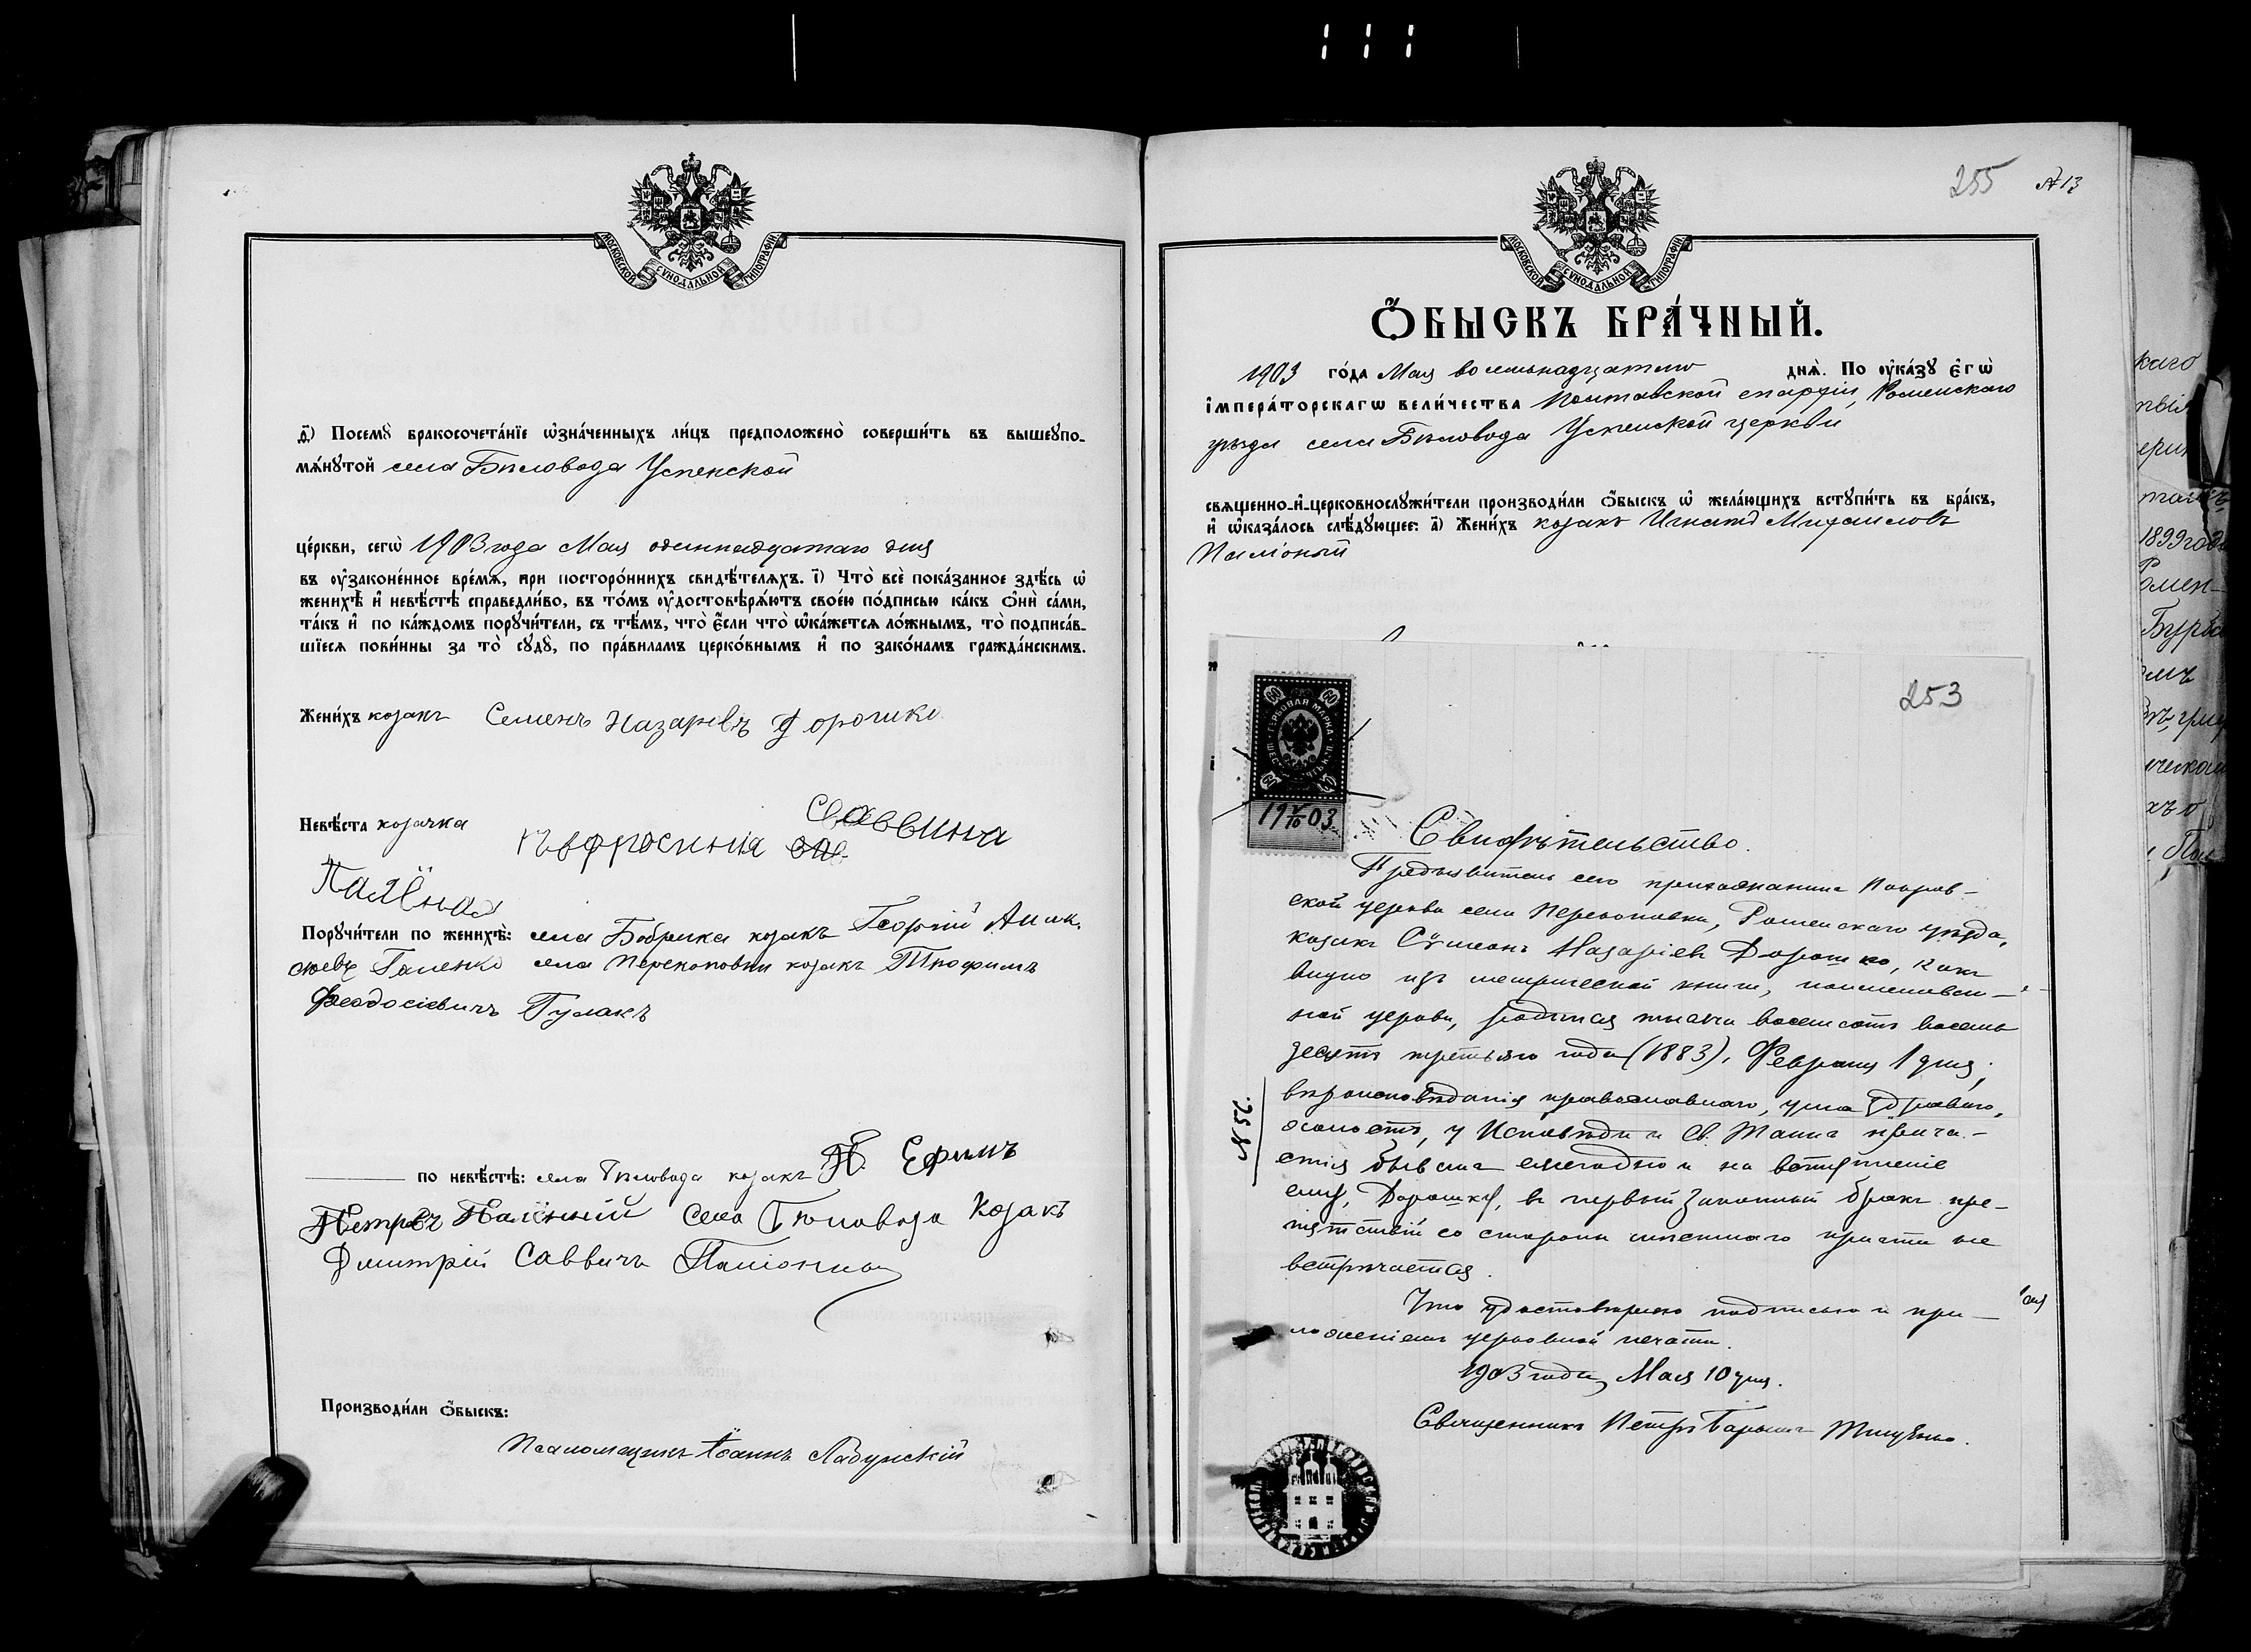 МОСКОВСКОЙ СѴНОДАЛЬНОЙ ТИПОГРАФІИ
д҃) Посемꙋ̀ бракосочета́нїе ѡ҆зна́ченныхъ ли́цъ предположено̀ соверши́ть въ вышеꙋпо-
мѧ́нꙋтой села Бѣловода Успенской
це́ркви, сегѡ̀ 1903 года Мая одиннадцатаго дня
въ ᲂу҆законе́нное вре́мѧ, при посторо́ннихъ свидѣ́телѧхъ. і҃) Что̀ всѐ пока́занное здѣ́сь ѡ҆
женихѣ̀ и҆ невѣ́стѣ справедли́во, въ то́мъ ᲂу҆достовѣрѧ́ютъ свое́ю по́дписью ка́къ ѻ҆нѝ са́ми,
та́къ и҆ по ка́ждомъ порꙋчи́тели, съ тѣ́мъ, что̀ є҆́сли что̀ ѡ҆ка́жетсѧ ло́жнымъ, то̀ подписа́в-
шїесѧ пови́нны за то̀ сꙋдꙋ̀, по пра́виламъ церко́внымъ и҆ по зако́намъ гражда́нскимъ.
Жени́хъ козакъ Семенъ Назаревъ Дорошко
Невѣ́ста козачка Евфросинія Саввина
Палёная
Порꙋчи́тели по женихѣ̀: села Бобрика козакъ Георгій
Гапенко села Перекоповки козакъ Трофимъ
Феодосіевичъ Гулакъ
по невѣ́стѣ: села Бѣловода козакъ Ефимъ
Петровъ Палїоный села Бѣловода Козакъ
Дмитрій Саввичъ
Производи́ли ѻ҆́быскъ:
Псаломщикъ Іоаннъ Лабунскій
255 №13
МОСКОВСКОЙ СѴНОДАЛЬНОЙ ТИПОГРАФІИ
Ѻ҆́БЫСКЪ БРА́ЧНЫЙ.
1903 го́да Мая восемнадцатаго днѧ̀. По ᲂу҆ка́зꙋ є҆гѡ̀
і҆мпера́торскагѡ вели́чества Полтавской епархіи, Роменскаго
уѣзда села Бѣловода Успенской церкви
свѧщенно-и҆-церковнослꙋжи́тели производи́ли ѻ҆́быскъ ѡ҆ жела́ющихъ встꙋпи́ть въ бра́къ,
и҆ ѡ҆каза́лось слѣ́дꙋющее: а҃) Жени́хъ козакъ Игнатъ Михаиловъ
Паліоный
253
60 60
ГЕРБОВАЯ МАРКА
19 V/10 03
Свидѣтельство.
Предъявитель сего прихожанинъ Покров-
ской церкви села Перекоповки, Роменскаго уѣзда,
козакъ Сѵмеонъ Назаріевъ Дорошко, какъ
видно изъ метрической книги, поименован-
ной церкви, родился тысяча восемсотъ восемь
десятъ третьяго года (1883), Февраля 1 дня,
вѣроисповѣданія православнаго, ума здраваго,
холостъ, у Исповѣди и Св. Таинъ прича-
стія бывалъ ежегодно и на вступленіе
ему, Дорошку, въ первый законный бракъ пре-
пятствій со стороны мѣстнаго причта не
встрѣчается.
Что удостовѣряю подписью и при-
ложеніемъ церковной печати.
1903 года, Мая 10 дня.
Священникъ Петръ
№ 52.
каго
1899 года